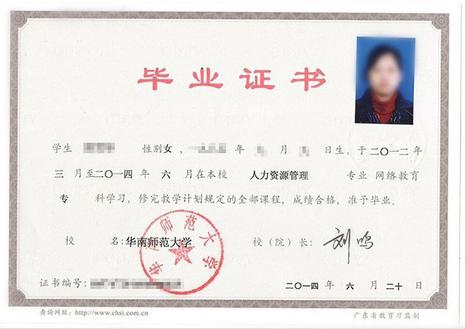 毕业证书
学生 性别女, 年 月 日生，于二〇一二年
三月至二〇一四年 六月在本校 人力资源管理 专业 网络教育
专 科学习，修完教学计划规定的全部课程，成绩合格，准予毕业。
校 名：华南师范大学 校（院）长：刘鸣
华南师范大学
证书编号： 二〇一四年 六月 二十日
查询网址：http://www.chsi.com.cn 广东省教育厅监制